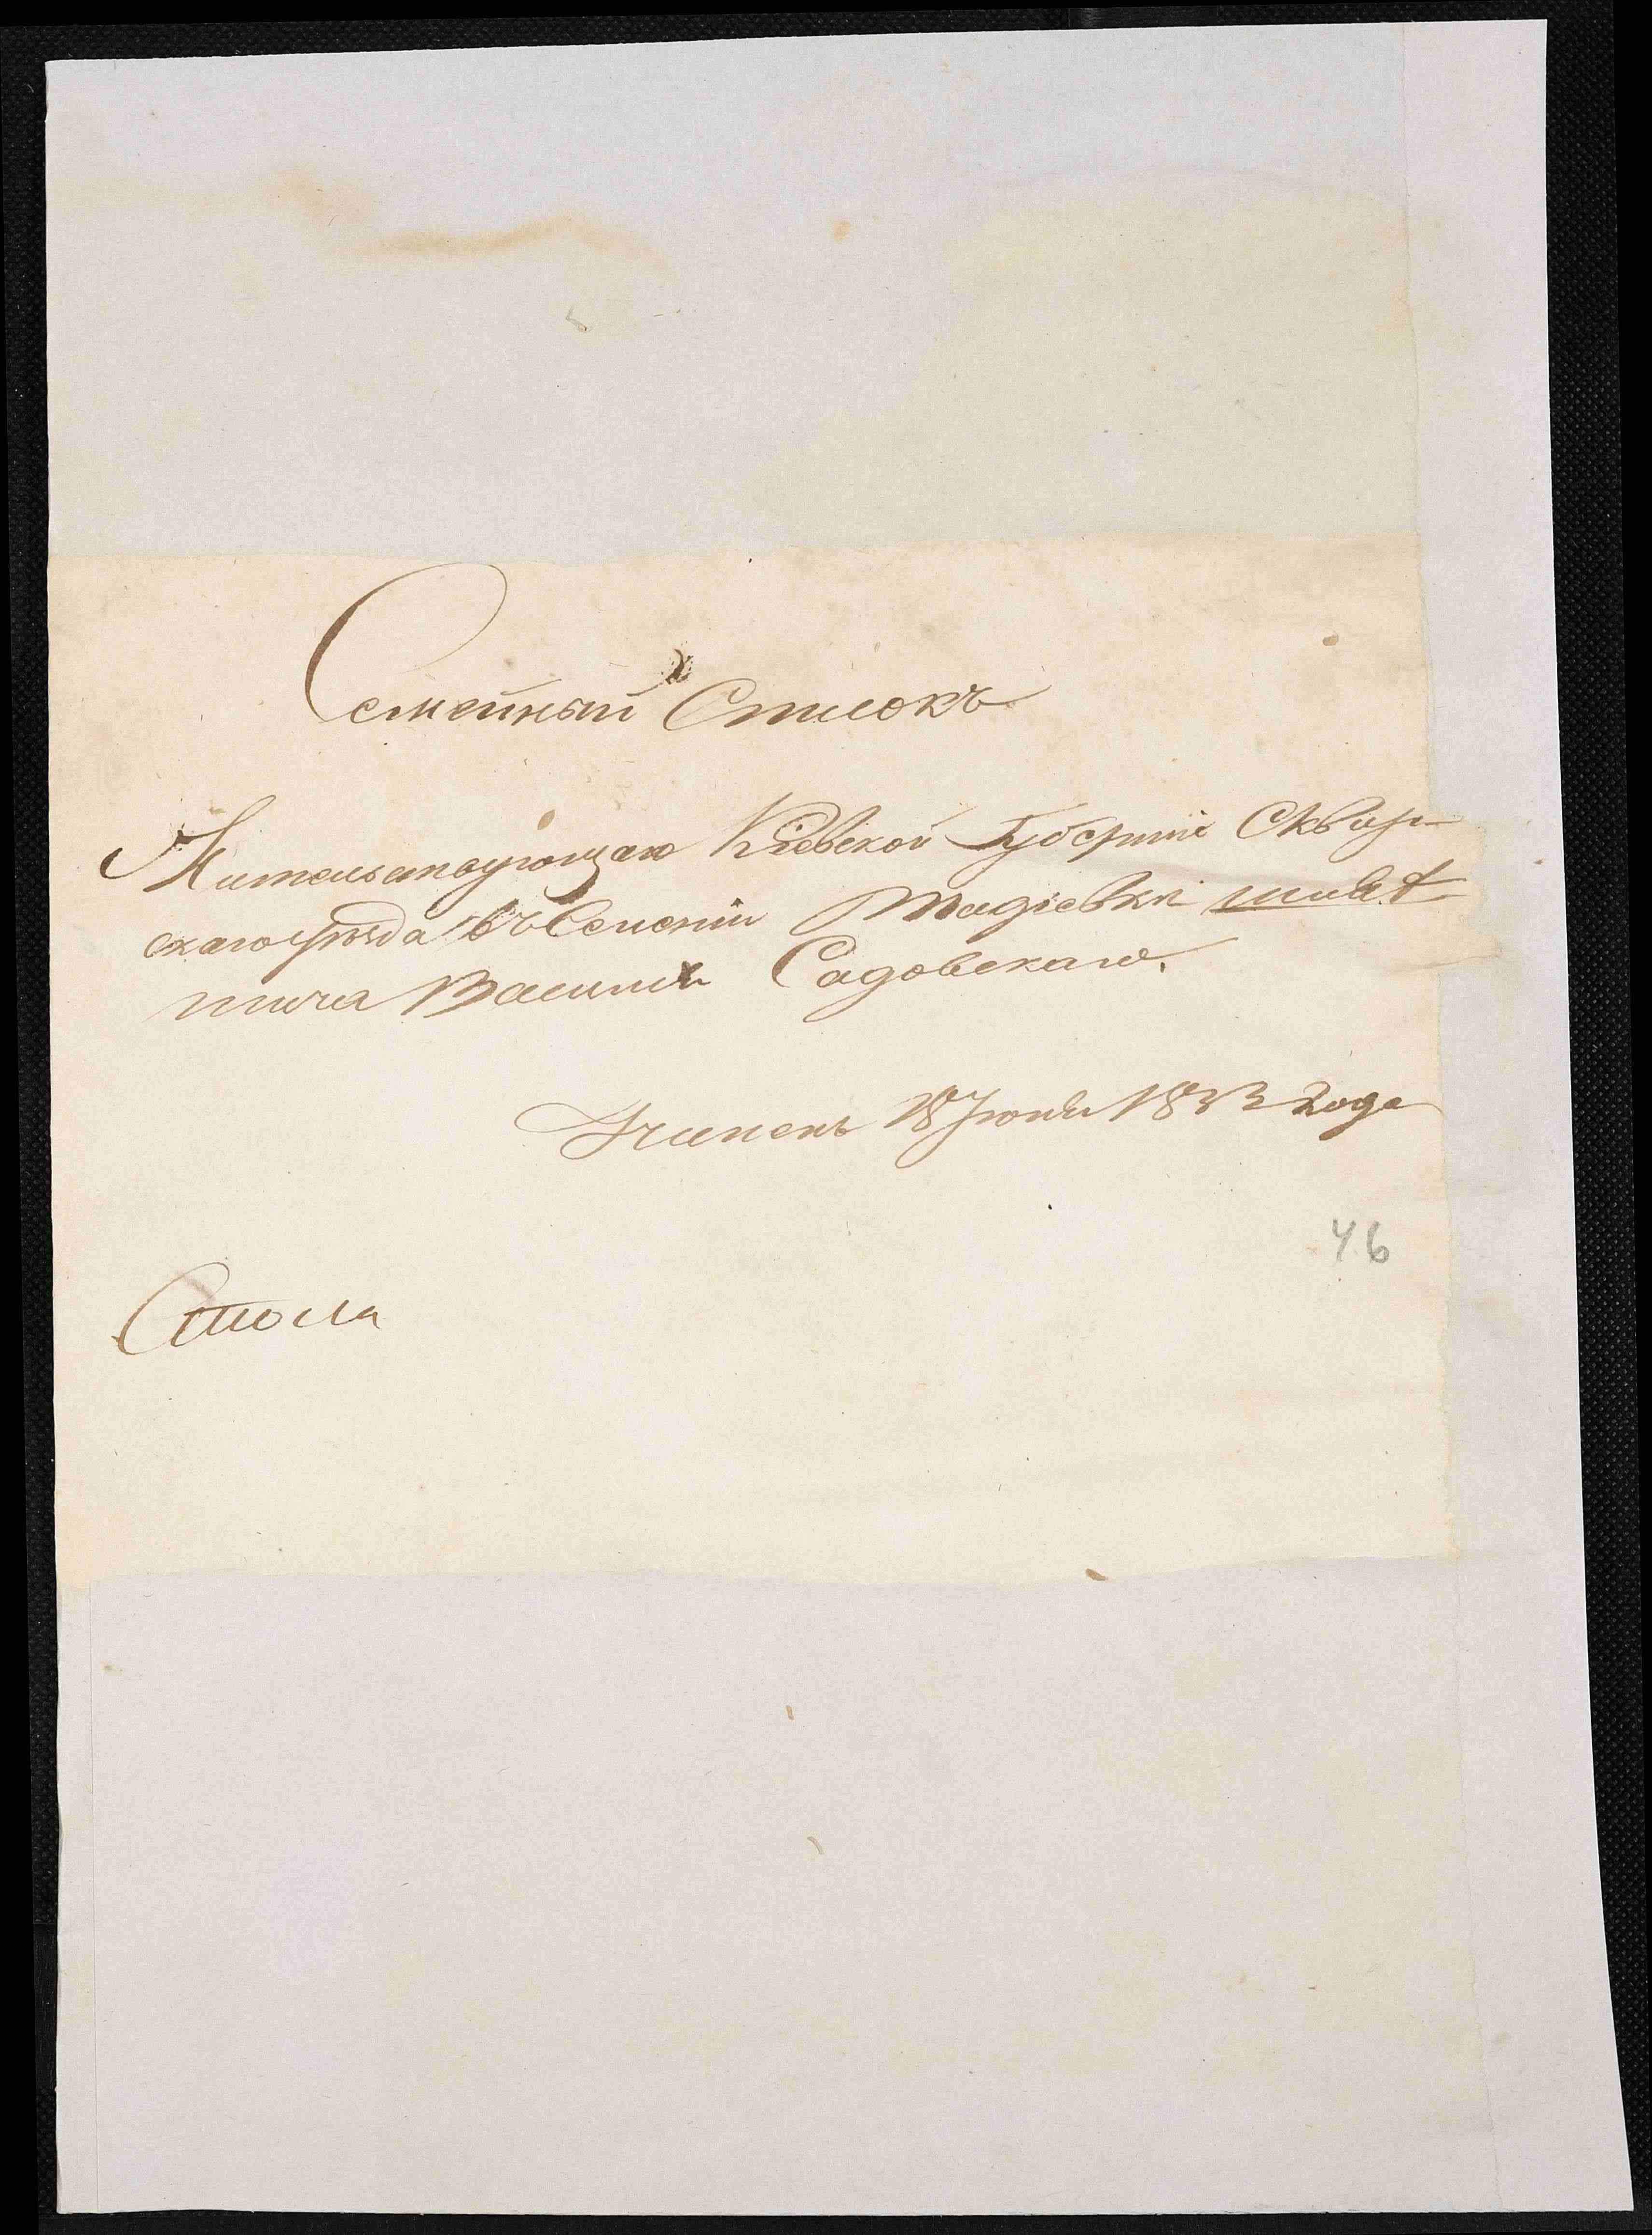 Семейный Списокъ
Жительствующаго Кіевской Губерніи Сквир-
скаго уѣзда въ Селеніи Тадіевки шлях-
тича Василія Садовскаго.
18 Іюня 1833 года
46